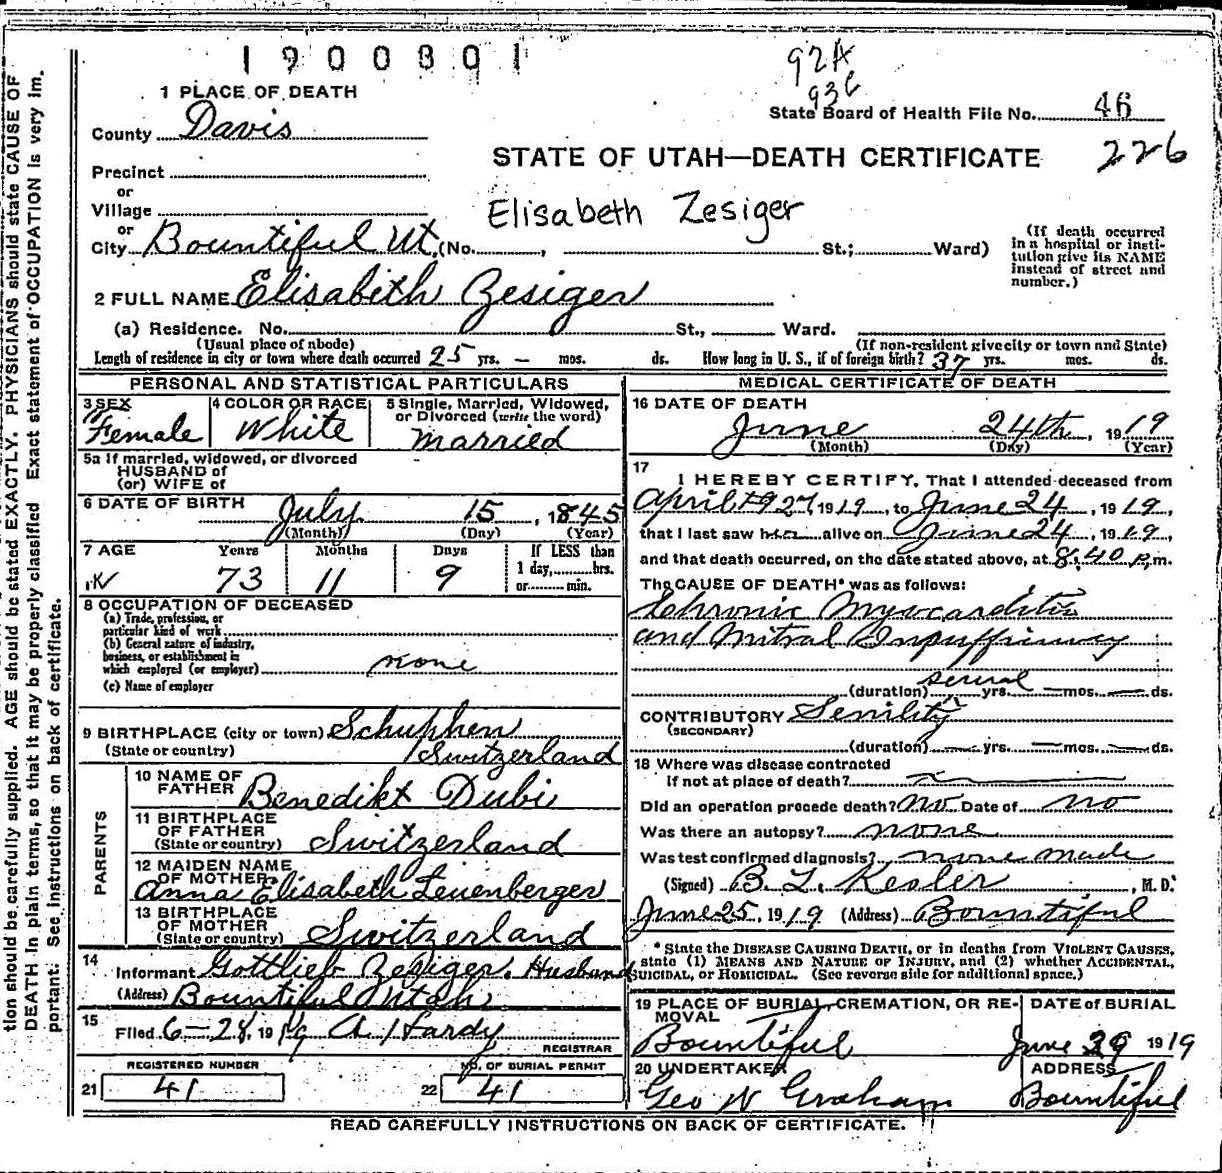 1900801
92A
93c
1 PLACE OF DEATH
State Board of Health File No. 46
County Davis
226
STATE OF UTAH—DEATH CERTIFICATE
Precinct
or
Village
Elisabeth Zesiger
or
City Bountiful Ut. (No. , St.; Ward)
(If death occurred in a hospital or institution give its NAME instead of street and number.)
2 FULL NAME Elisabeth Zesiger
(a) Residence. No. St., Ward.
(Usual place of abode) (If non-resident give city or town and State)
Length of residence in city or town where death occurred 25 yrs. — mos. ds. How long in U. S., if of foreign birth? 37 yrs. mos. ds.
PERSONAL AND STATISTICAL PARTICULARS
3 SEX
Female
4 COLOR OR RACE
White
5 Single, Married, Widowed,
or Divorced (write the word)
Married
5a If married, widowed, or divorced
HUSBAND of
(or) WIFE of
6 DATE OF BIRTH July 15, 1845
(Month) (Day) (Year)
7 AGE Years Months Days If LESS than
1 day, hrs.
or min.
73 11 9
8 OCCUPATION OF DECEASED
(a) Trade, profession, or
particular kind of work
(b) General nature of industry,
business, or establishment in
which employed (or employer) none
(c) Name of employer
9 BIRTHPLACE (city or town) Schuphen
(State or country) Switzerland
PARENTS
10 NAME OF
FATHER Benedikt Dubi
11 BIRTHPLACE
OF FATHER
(State or country) Switzerland
12 MAIDEN NAME
OF MOTHER
Anna Elisabeth Leuenberger
13 BIRTHPLACE
OF MOTHER
(State or country) Switzerland
14
Informant Gottlieb Zesiger. Husband
(Address) Bountiful Utah
15
Filed 6-28, 1919 A. Hardy
REGISTRAR
REGISTERED NUMBER
21 41
NO. OF BURIAL PERMIT
22 41
MEDICAL CERTIFICATE OF DEATH
16 DATE OF DEATH
June 24th, 1919
(Month) (Day) (Year)
17
I HEREBY CERTIFY, That I attended deceased from
April 1919, to June 24, 1919,
that I last saw her alive on June 24, 1919,
and that death occurred, on the date stated above, at 8:40 p.m.
The CAUSE OF DEATH* was as follows:
Chronic Myocarditis
and Mitral Insufficiency
(duration) several yrs. — mos. — ds.
CONTRIBUTORY Senility
(SECONDARY)
(duration) — yrs. — mos. — ds.
18 Where was disease contracted
if not at place of death?
Did an operation precede death? No Date of no
Was there an autopsy? none
Was test confirmed diagnosis? none made
(Signed) B. L. Kesler, M. D.
June 25, 1919 (Address) Bountiful
* State the DISEASE CAUSING DEATH, or in deaths from VIOLENT CAUSES,
state (1) MEANS AND NATURE OF INJURY, and (2) whether ACCIDENTAL,
SUICIDAL, or HOMICIDAL. (See reverse side for additional space.)
19 PLACE OF BURIAL, CREMATION, OR RE-
MOVAL
Bountiful
DATE of BURIAL
June 29 1919
20 UNDERTAKER
Geo W Graham
ADDRESS
Bountiful
READ CAREFULLY INSTRUCTIONS ON BACK OF CERTIFICATE.
tion should be carefully supplied. AGE should be stated EXACTLY. PHYSICIANS should state CAUSE OF
DEATH in plain terms, so that it may be properly classified Exact statement of OCCUPATION is very im.
portant. See instructions on back of certificate.